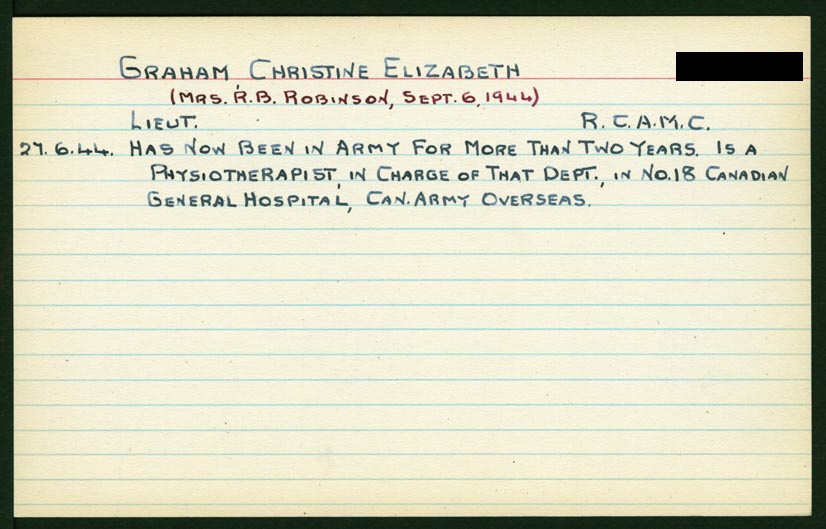 GRAHAM CHRISTINE ELIZABETH
(MRS. R.B. ROBINSON, SEPT. 6, 1944)
LIEUT. R.C.A.M.C.
27.6.44. HAS NOW BEEN IN ARMY FOR MORE THAN TWO YEARS. IS A
PHYSIOTHERAPIST, IN CHARGE OF THAT DEPT., IN NO.18 CANADIAN
GENERAL HOSPITAL, CAN. ARMY OVERSEAS.